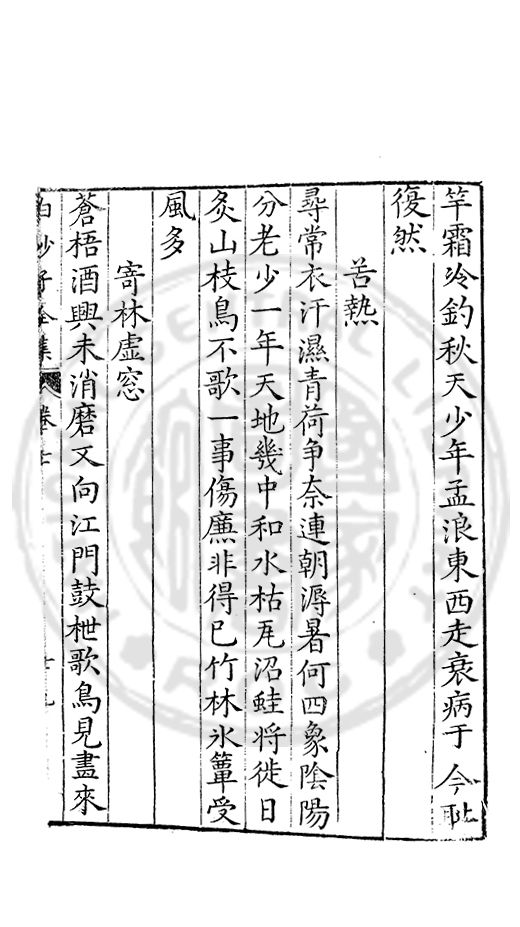 竿霜冷釣秋天少年孟浪東西走衰病于今耻
復然
苦熱
尋常衣汗濕青荷争奈連朝溽暑何四象陰陽
分老少一年天地幾中和水枯瓦沼蛙将徙日
炙山枝鳥不歌一事傷廉非得已竹林氷簟受
風多
寄林虛窓
蒼梧酒興未消磨又向江門鼓枻歌鳥見盡來
白沙子全集 卷七